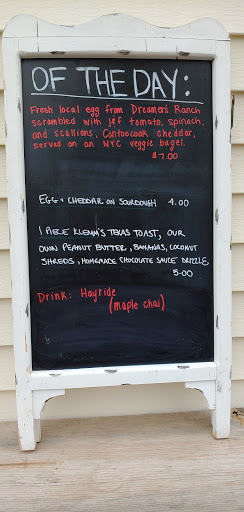 OF THE DAY:
Fresh local egg from Dreamers Ranch
scrambled with J&F tomato, spinach,
and scallions, Contoocook cheddar,
served on an NYC veggie bagel.
$7.00
EGG + CHEDDAR ON SOURDOUGH 4.00
1 PIECE KLEMM'S TEXAS TOAST, OUR
OWN PEANUT BUTTER, BANANAS, COCONUT
SHREDS, HOMEMADE CHOCOLATE SAUCE DRIZZLE
5.00
Drink: Hayride
(maple chai)